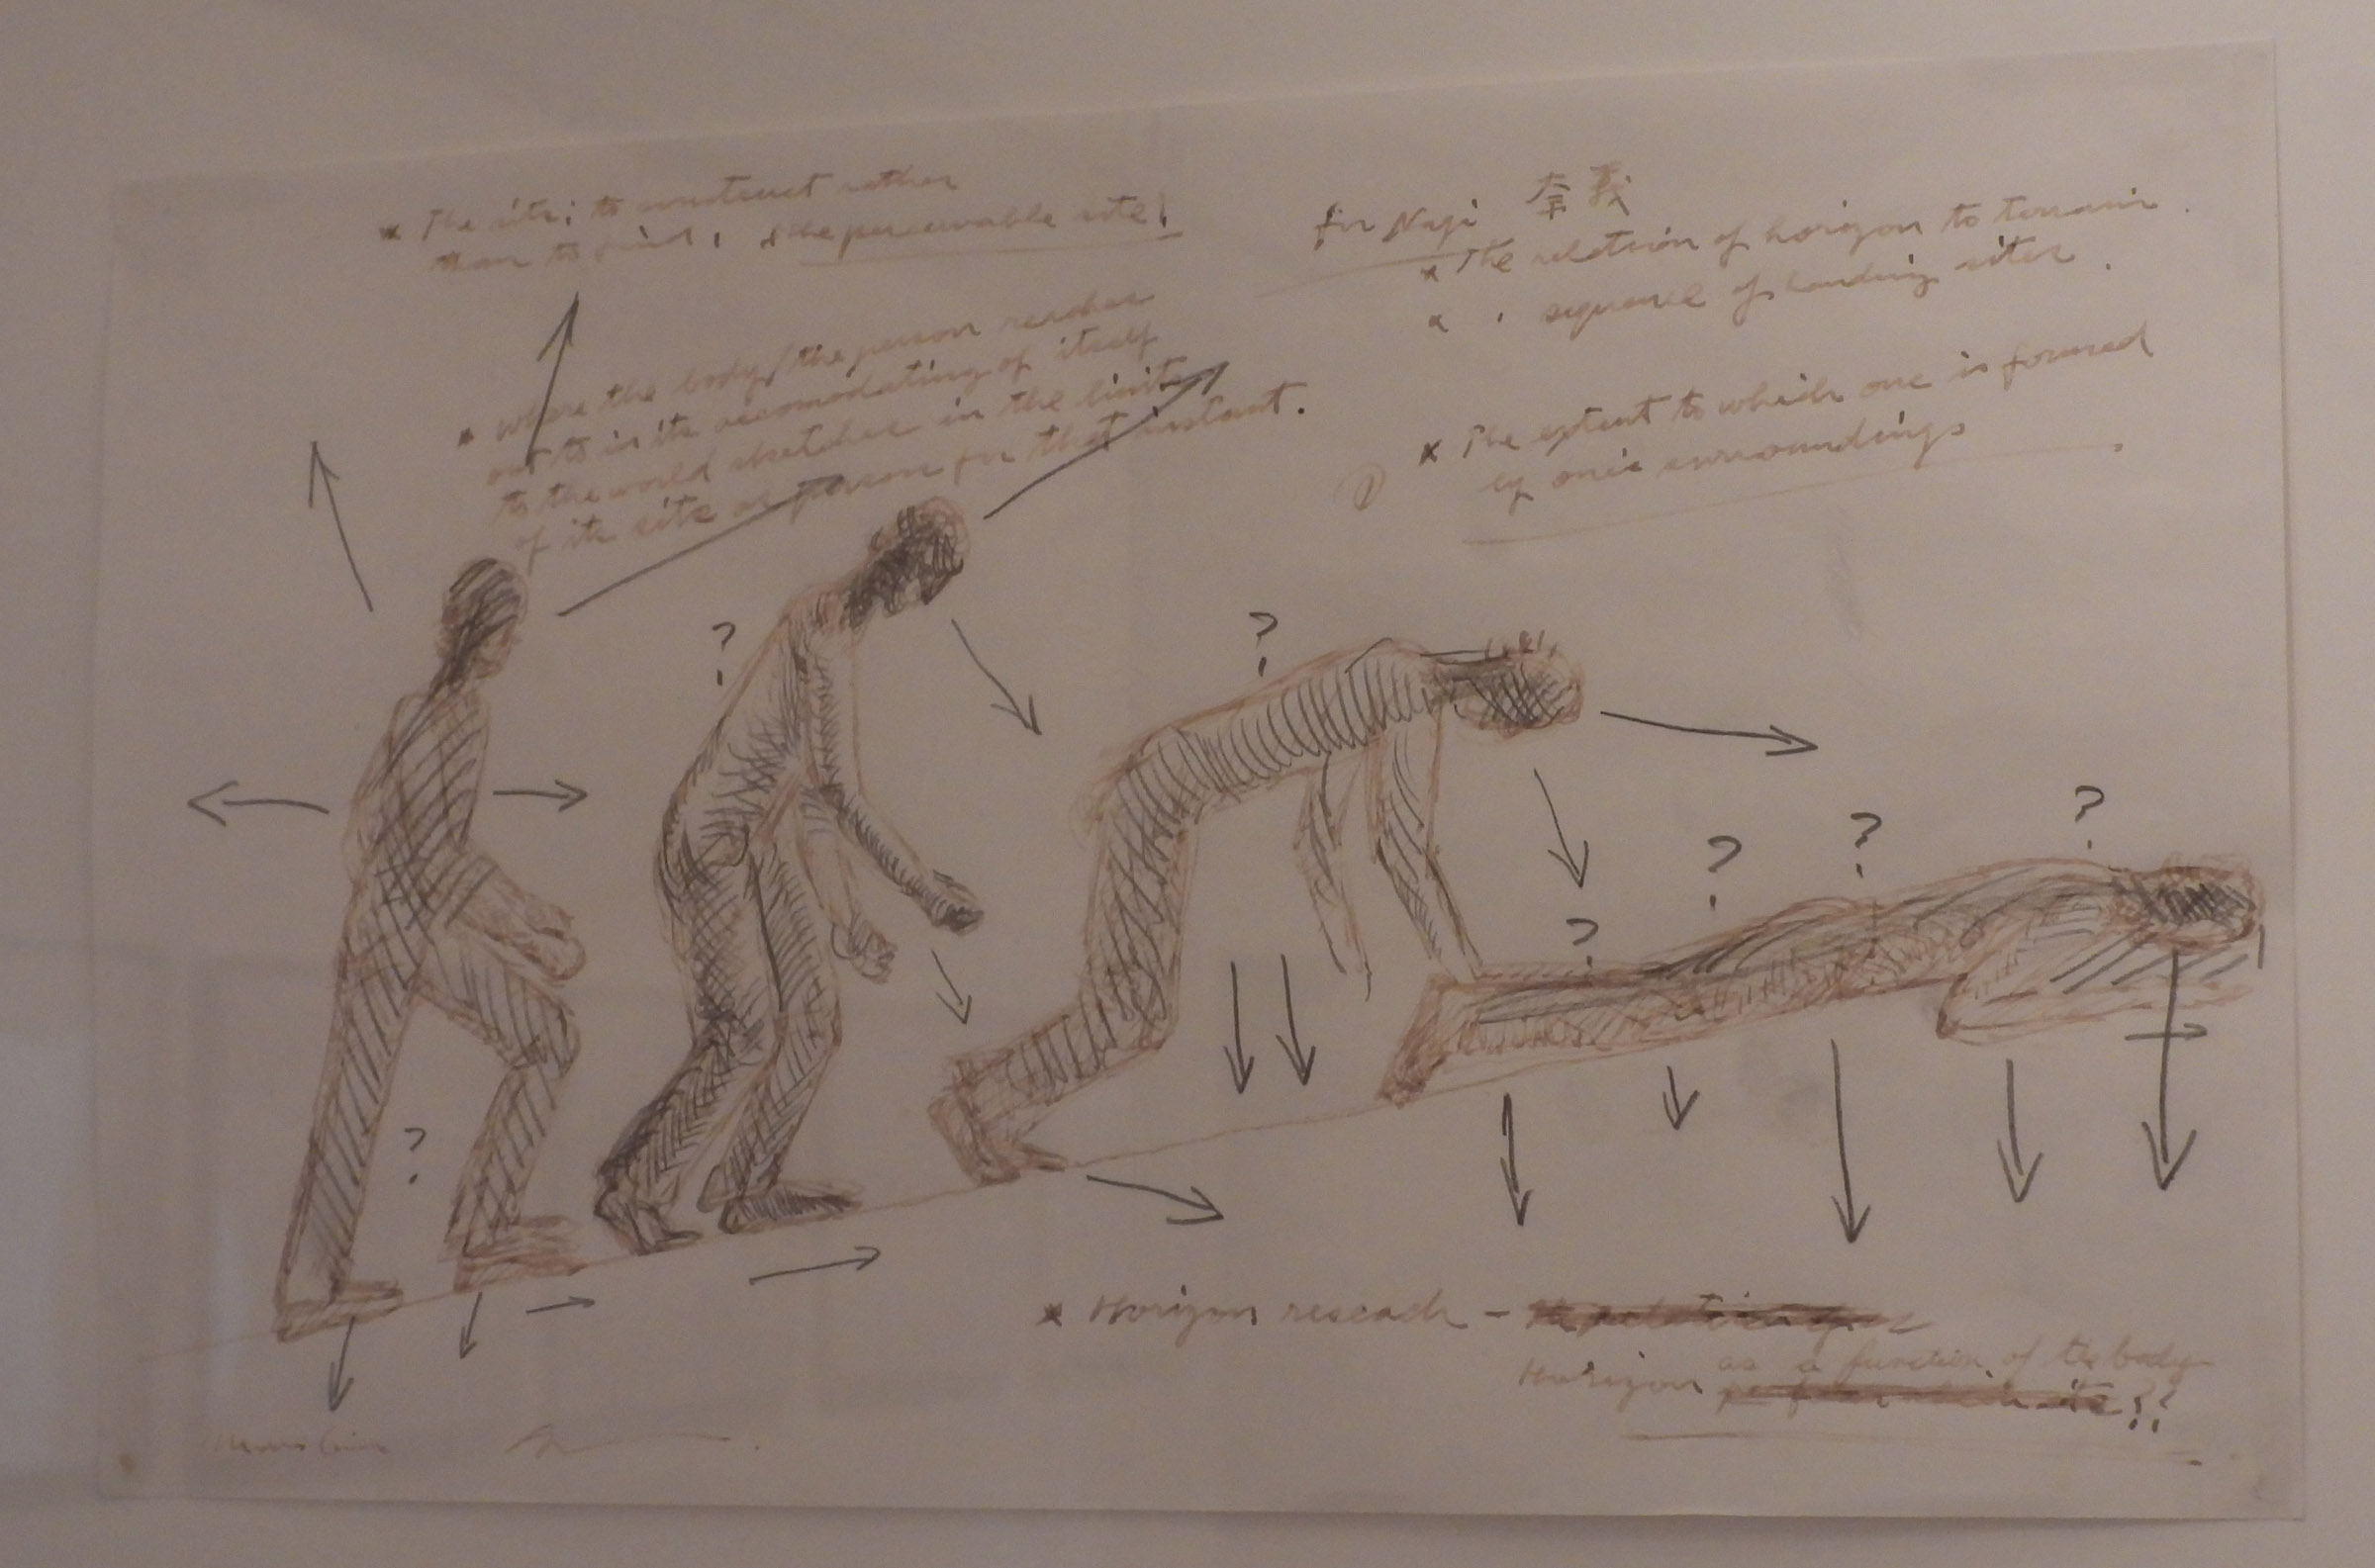 * The site; to construct rather
than to find, the perceivable site!
* where the body/the person reaches
out to in its accomodating of itself
to the world sketches in the limits
of its site as person for that instant.
for Nagi 奈義
* The relation of horizon to terrain.
* " sequence of landing sites.
* The extent to which one is formed
by one's surroundings
?
?
?
?
?
?
?
* Horizon reseach -
Horizon as a function of the body
??